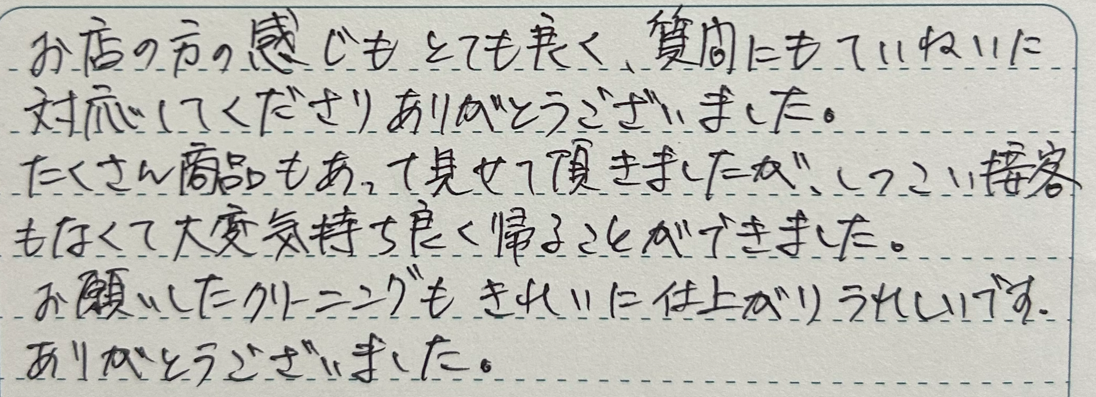 お店の方の感じもとても良く、質問にもていねいに
対応してくださりありがとうございました。
たくさん商品もあって見せて頂きましたが、しつこい接客
もなくて大変気持ち良く帰ることができました。
お願いしたクリーニングもきれいに仕上がりうれしいです.
ありがとうございました。